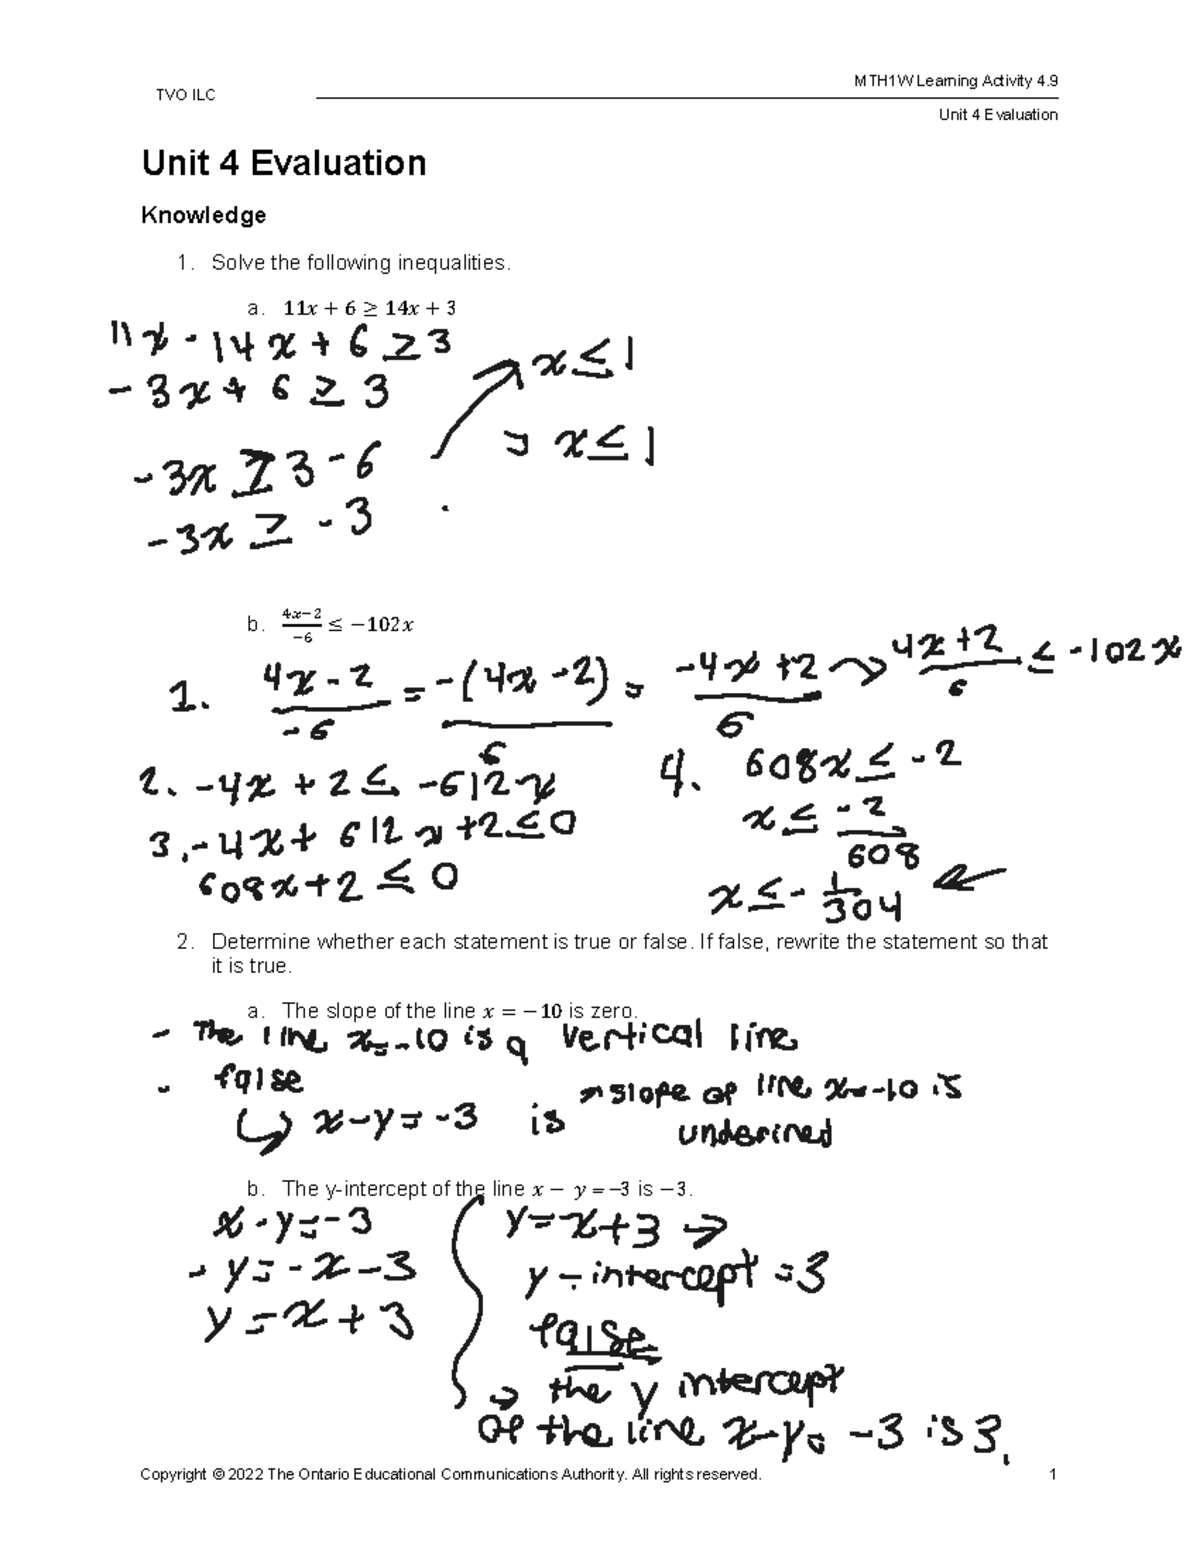 MTH1W Learning Activity 4.9
TVO ILC
Unit 4 Evaluation
Unit 4 Evaluation
Knowledge
1. Solve the following inequalities.
a. 11x + 6 ≥ 14x + 3
11x - 14x + 6 ≥ 3
- 3x + 6 ≥ 3
x ≤ 1
x ≤ 1
-3x ≥ 3 - 6
-3x ≥ -3
b. (4x−2)/(−6) ≤ −102x
1. (4x - 2)/(-6) = (-(4x - 2))/6 = (-4x + 2)/6 → (4x + 2)/6 ≤ -102x
2. -4x + 2 ≤ -612x
3. -4x + 612x + 2 ≤ 0
608x + 2 ≤ 0
4. 608x ≤ -2
x ≤ -2/608
x ≤ - 1/304
2. Determine whether each statement is true or false. If false, rewrite the statement so that
it is true.
a. The slope of the line x = −10 is zero.
- The line x=-10 is a vertical line
- false
→ slope of line x=-10 is
↳ x-y=-3 is
undefined
b. The y-intercept of the line x − y = −3 is −3.
x - y = -3
- y = -x - 3
y = x + 3
y = x + 3 →
y-intercept = 3
false
→ the y intercept
of the line x-y= -3 is 3.
Copyright © 2022 The Ontario Educational Communications Authority. All rights reserved. 1